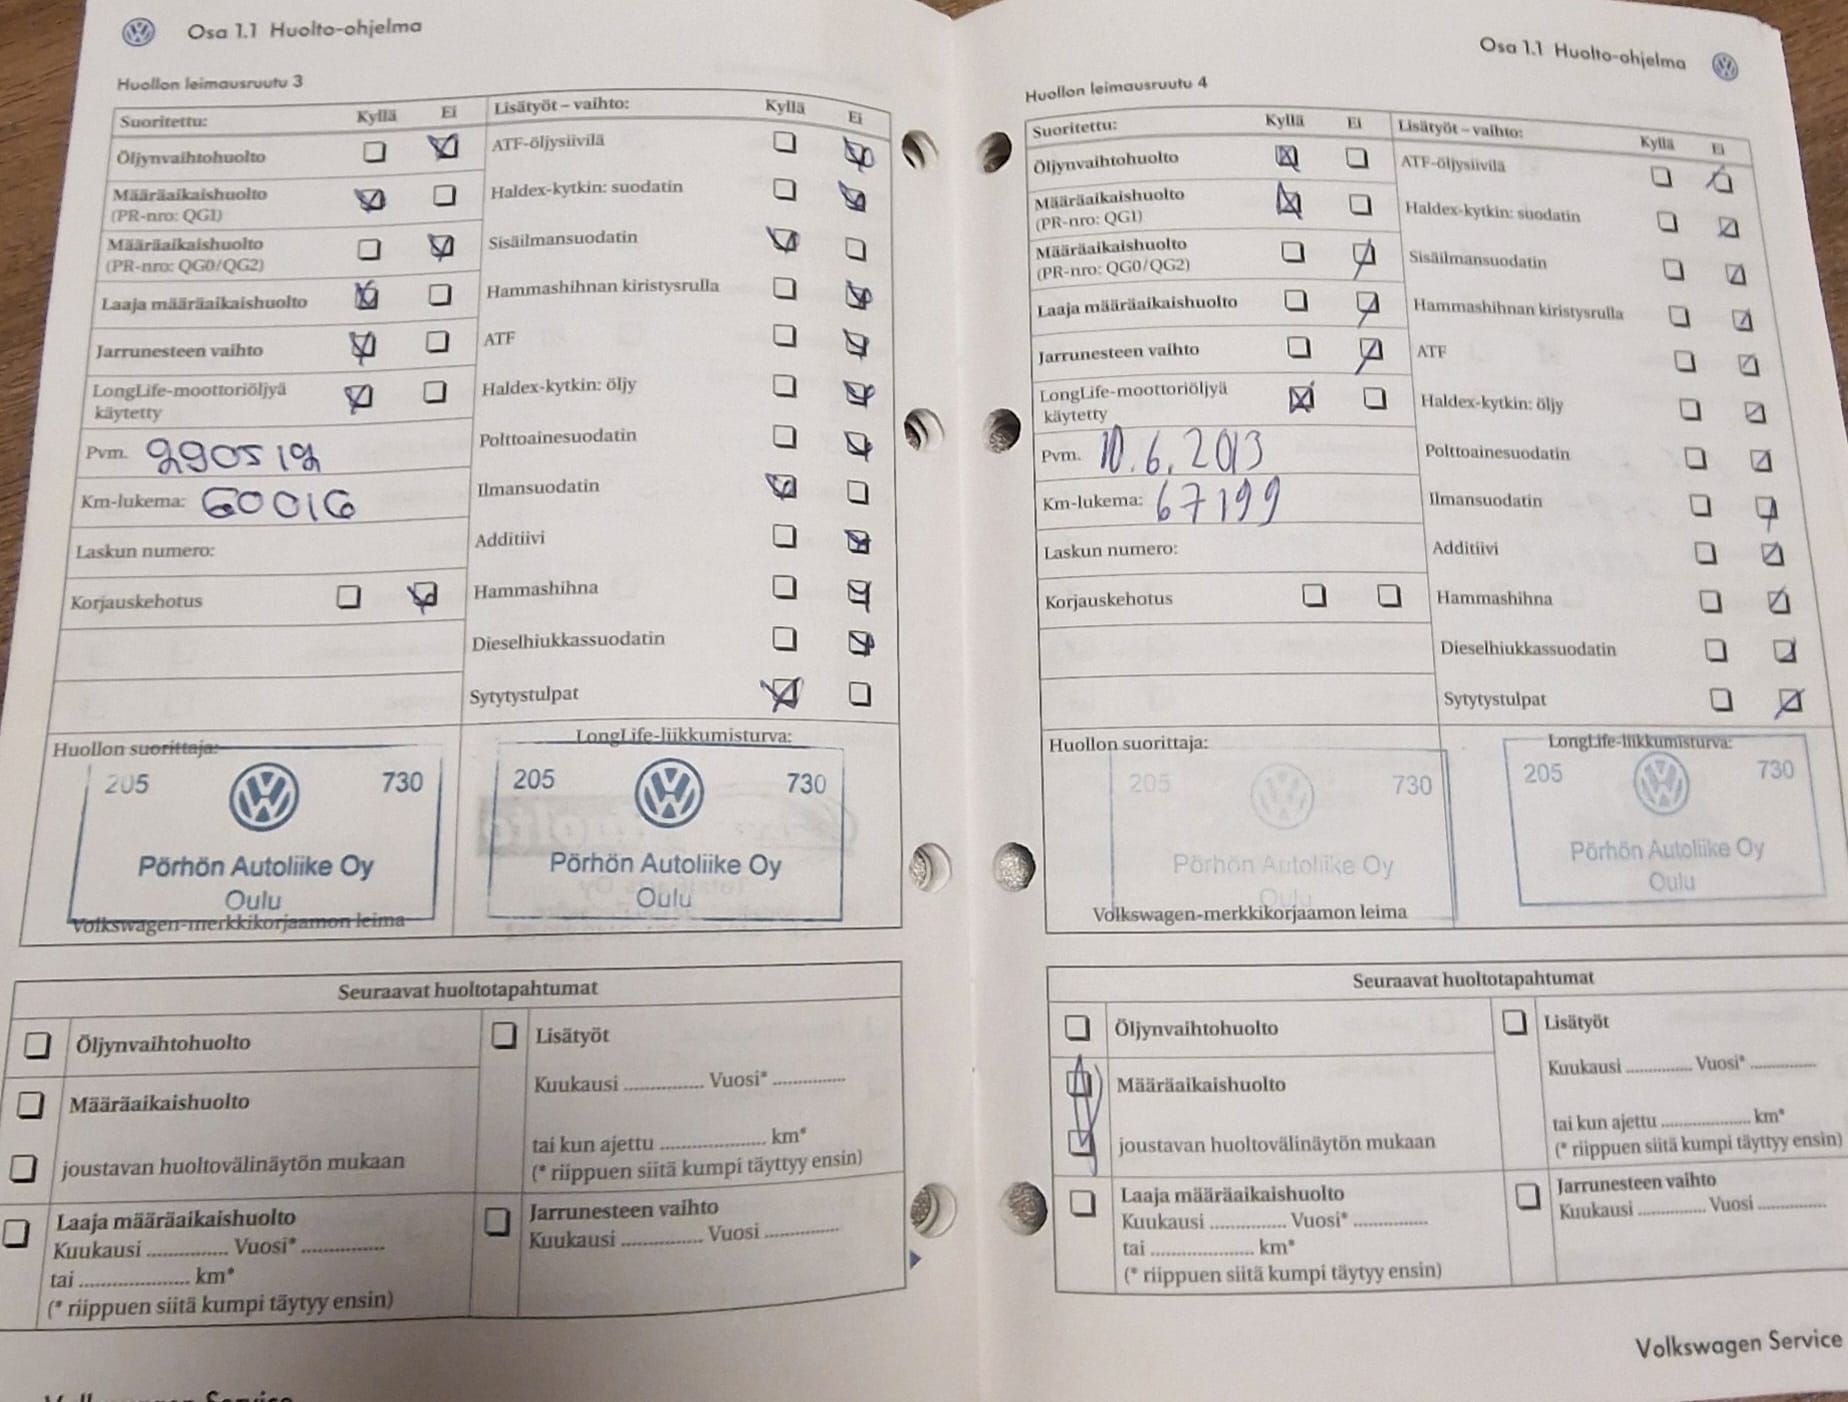 Osa 1.1 Huolto-ohjelma
Huollon leimausruutu 3
Suoritettu: Kyllä Ei
Öljynvaihtohuolto
Määräaikaishuolto
(PR-nro: QG1)
Määräaikaishuolto
(PR-nro: QG0/QG2)
Laaja määräaikaishuolto
Jarrunesteen vaihto
LongLife-moottoriöljyä
käytetty
Pvm. 290512
Km-lukema: 60016
Laskun numero:
Korjauskehotus
Lisätyöt – vaihto: Kyllä Ei
ATF-öljysiivilä
Haldex-kytkin: suodatin
Sisäilmansuodatin
Hammashihnan kiristysrulla
ATF
Haldex-kytkin: öljy
Polttoainesuodatin
Ilmansuodatin
Additiivi
Hammashihna
Dieselhiukkassuodatin
Sytytystulpat
Huollon suorittaja:
205 730
Pörhön Autoliike Oy
Oulu
Volkswagen-merkkikorjaamon leima
LongLife-liikkumisturva:
205 730
Pörhön Autoliike Oy
Oulu
Seuraavat huoltotapahtumat
Öljynvaihtohuolto
Määräaikaishuolto
joustavan huoltovälinäytön mukaan
Laaja määräaikaishuolto
Kuukausi .............. Vuosi* ..............
tai .................... km*
(* riippuen siitä kumpi täytyy ensin)
Lisätyöt
Kuukausi .............. Vuosi* .............
tai kun ajettu .................. km*
(* riippuen siitä kumpi täyttyy ensin)
Jarrunesteen vaihto
Kuukausi .............. Vuosi .............
Volkswagen Service
Osa 1.1 Huolto-ohjelma
Huollon leimausruutu 4
Suoritettu: Kyllä Ei
Öljynvaihtohuolto
Määräaikaishuolto
(PR-nro: QG1)
Määräaikaishuolto
(PR-nro: QG0/QG2)
Laaja määräaikaishuolto
Jarrunesteen vaihto
LongLife-moottoriöljyä
käytetty
Pvm. 10.6.2013
Km-lukema: 67199
Laskun numero:
Korjauskehotus
Lisätyöt – vaihto: Kyllä Ei
ATF-öljysiivilä
Haldex-kytkin: suodatin
Sisäilmansuodatin
Hammashihnan kiristysrulla
ATF
Haldex-kytkin: öljy
Polttoainesuodatin
Ilmansuodatin
Additiivi
Hammashihna
Dieselhiukkassuodatin
Sytytystulpat
Huollon suorittaja:
205 730
Pörhön Autoliike Oy
Oulu
Volkswagen-merkkikorjaamon leima
LongLife-liikkumisturva:
205 730
Pörhön Autoliike Oy
Oulu
Seuraavat huoltotapahtumat
Öljynvaihtohuolto
Määräaikaishuolto
joustavan huoltovälinäytön mukaan
Laaja määräaikaishuolto
Kuukausi .............. Vuosi* .............
tai .................... km*
(* riippuen siitä kumpi täytyy ensin)
Lisätyöt
Kuukausi ............ Vuosi* ............
tai kun ajettu ................ km*
(* riippuen siitä kumpi täyttyy ensin)
Jarrunesteen vaihto
Kuukausi ............ Vuosi ............
Volkswagen Service